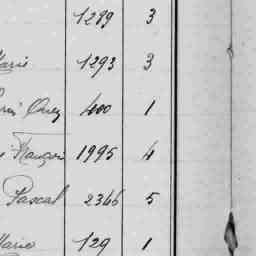 1289 3
Marie 1293 3
400 1
François 1995 4
Pascal 2366 5
Marie 129 1